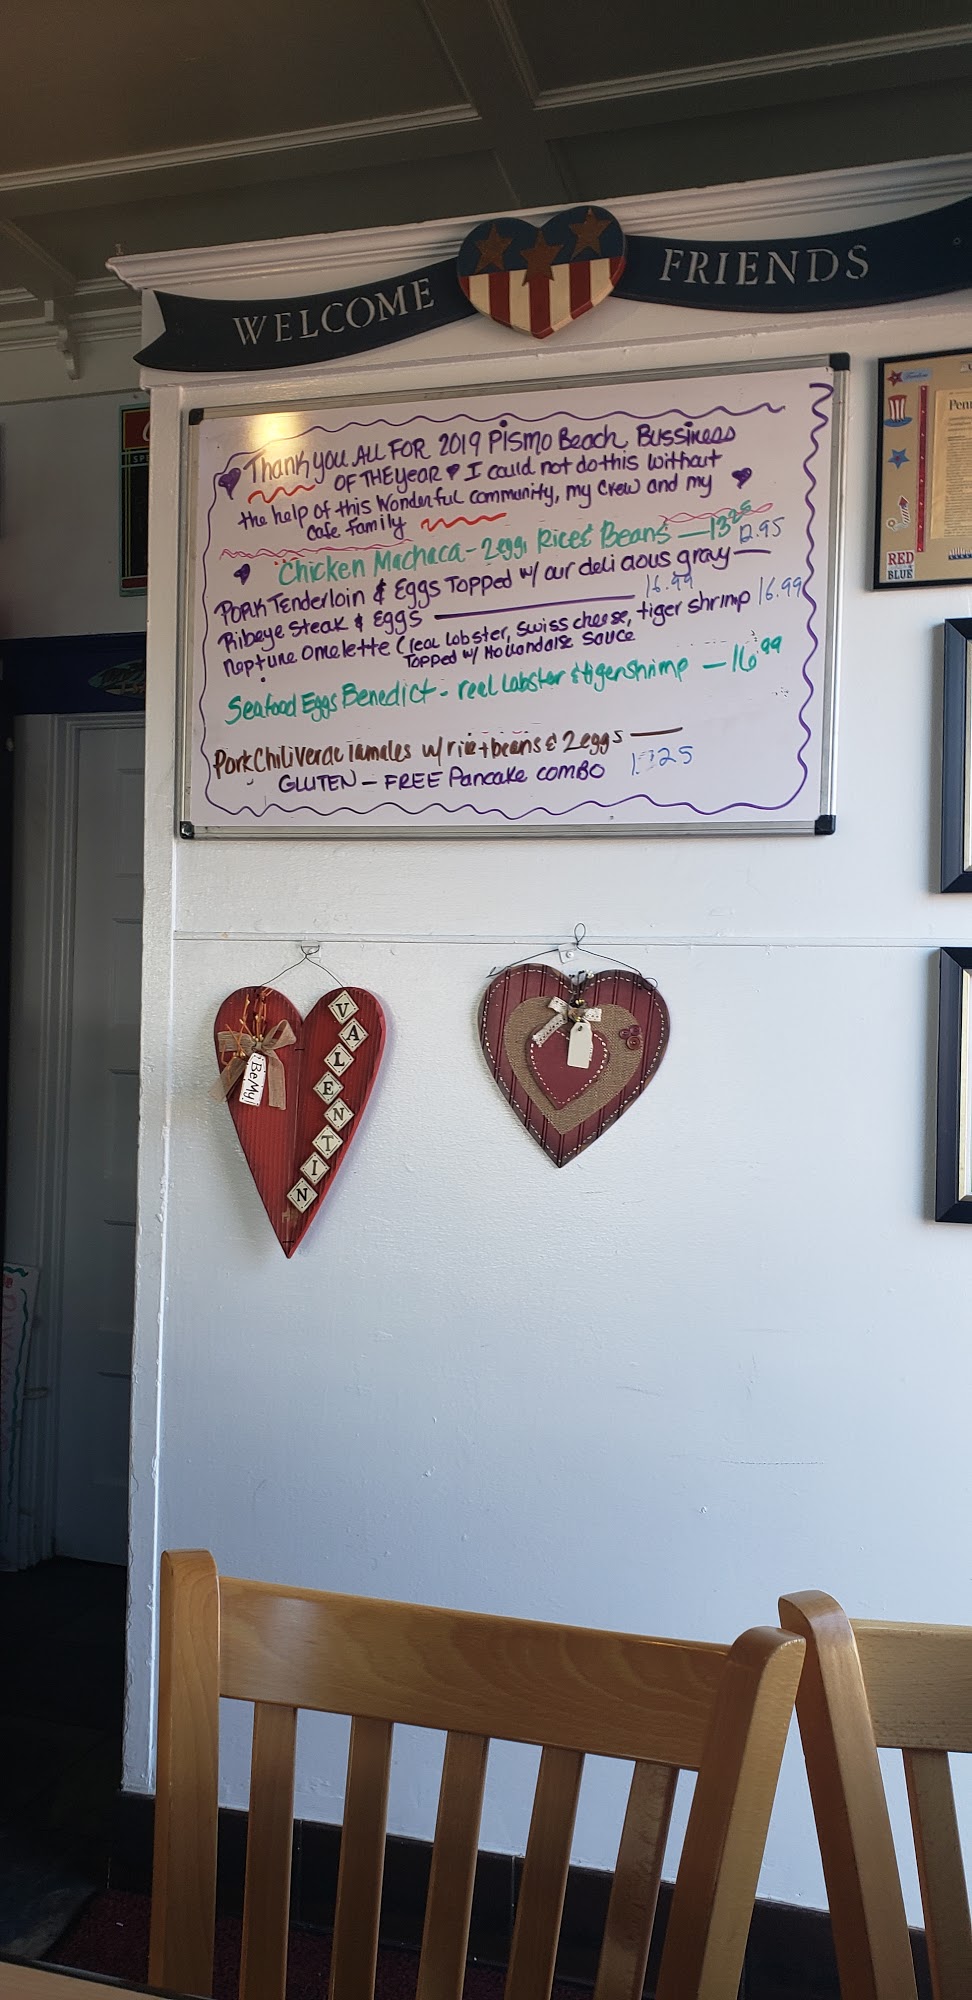 WELCOME FRIENDS
Thank you ALL FOR 2019 Pismo Beach Bussiness
OF THE year I could not do this without
the help of this wonderful community, my crew and my
cafe family
Chicken Machaca - 2 eggs Rice & Beans — 13.25
Pork Tenderloin & Eggs Topped w/ our deliaous gray — 12.95
Ribeye Steak & Eggs — 16.99
Neptune Omelette (real lobster, swiss cheese, tiger shrimp 16.99
Topped w/ Hollandaise Sauce
Seafood Eggs Benedict - real lobster & tiger shrimp — 16.99
Pork Chili Verde Tamales w/ rice + beans & 2 eggs —
GLUTEN - FREE Pancake COMBO
RED
BLUE
Be My
VALENTIN